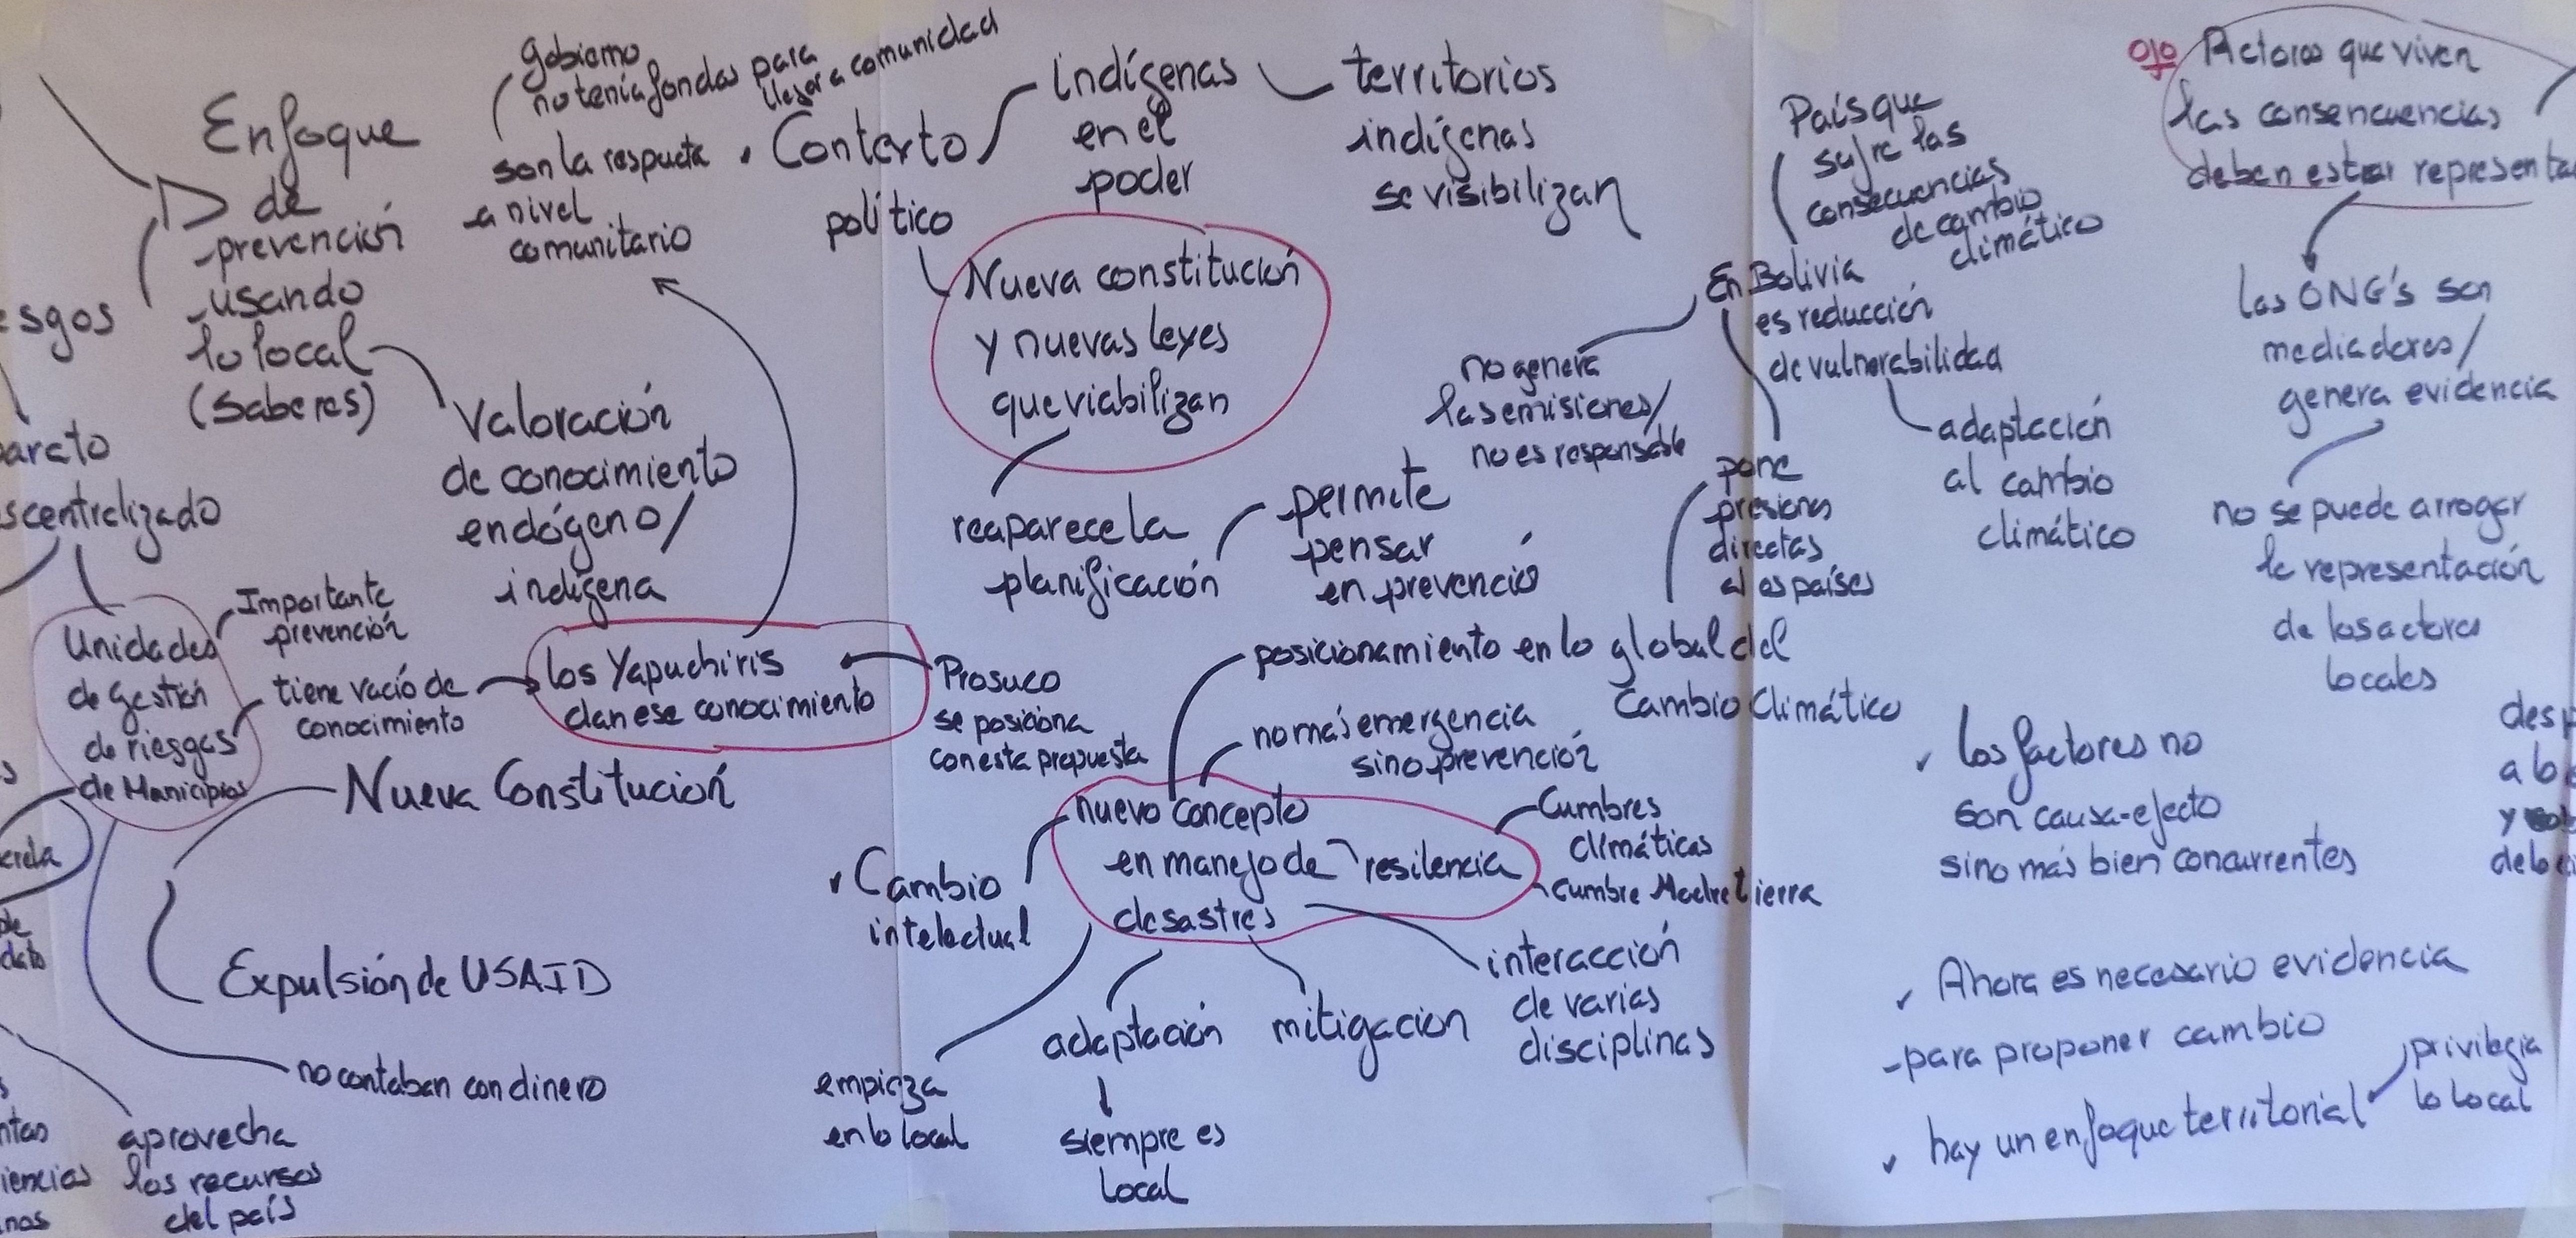 Enfoque
de
prevención
usando
lo local
(saberes)
Valoración
de conocimiento
endógeno/
indígena
gobierno
no tenía fondos para
llegar a comunidad
son la respuesta
a nivel
comunitario
Contexto
político
indígenas
en el
poder
territorios
indígenas
se visibilizan
Nueva constitución
y nuevas leyes
que viabilizan
reaparece la
planificación
permite
pensar
en prevenció
esgos
scentralizado
Unidades
de gestión
de riesgos
de Municipios
Importante
prevención
tiene vacío de
conocimiento
los Yapuchiris
dan ese conocimiento
Prosuco
se posiciona
con esta propuesta
Nueva Constitución
Expulsión de USAID
no contaban con dinero
aprovecha
los recursos
del país
dato
ntas
iencias
nas
nuevo concepto
en manejo de resilencia
desastres
posicionamiento en lo global del
Cambio Climático
no más emergencia
sino prevención
Cumbres
climáticas
cumbre Madre tierra
Cambio
intelectual
empieza
en lo local
adaptación
siempre es
local
mitigacion
interacción
de varias
disciplinas
País que
sufre las
consecuencias
de cambio
climático
En Bolivia
es reducción
de vulnerabilidad
adaptación
al cambio
climático
no genera
las emisiones/
no es responsable
pone
presiones
directas
a los países
ojo Actores que viven
las consencuencias
deben estar representa
las ONG's son
mediadores/
genera evidencia
no se puede arrogar
la representación
de los actores
locales
los factores no
son causa-efecto
sino más bien concurrentes
Ahora es necesario evidencia
para proponer cambio
hay un enfoque territorial
privilegia
lo local
desp